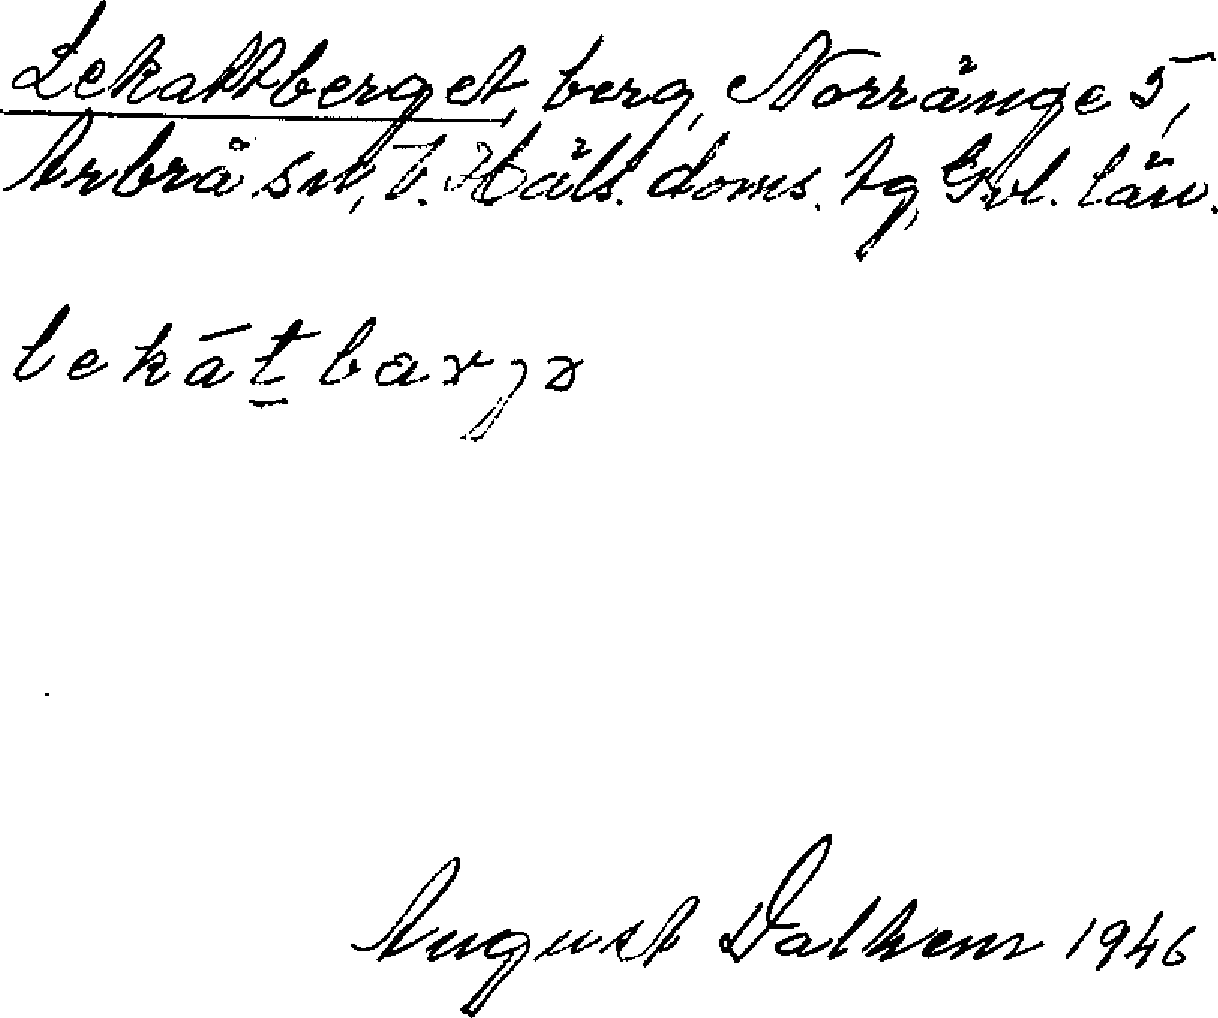 Lekattberget, berg, Norränge 5,
Arbrå sn, V. Häls. doms. tg, Gvl. län.
lekát̲barjə
August Dalhem 1946